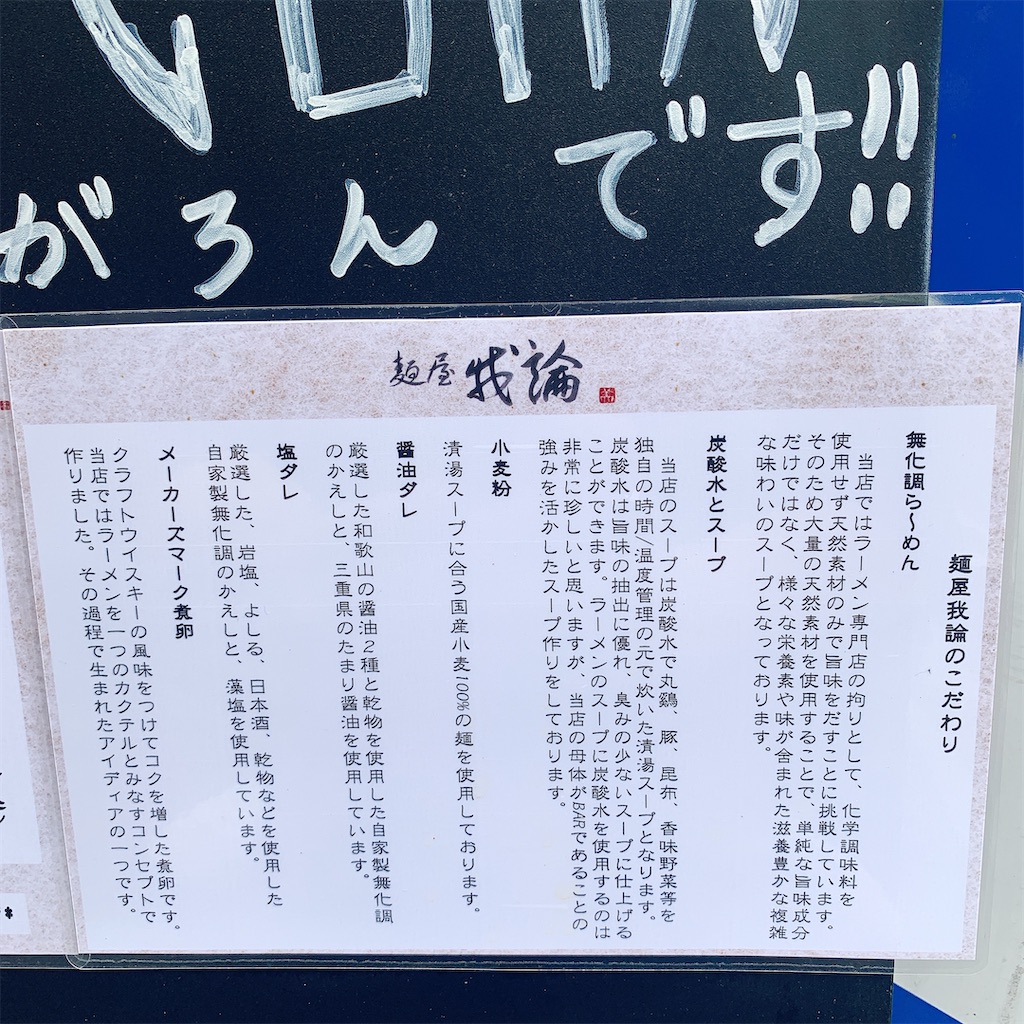 がろん
です!!
麺屋 我論
麺屋我論のこだわり
無化調ら〜めん
当店ではラーメン専門店の拘りとして、化学調味料を
使用せず天然素材のみで旨味をだすことに挑戦しています。
そのため大量の天然素材を使用することで、単純な旨味成分
だけではなく、様々な栄養素や味が含まれた滋養豊かな複雑
な味わいのスープとなっております。
炭酸水とスープ
当店のスープは炭酸水で丸鶏、豚、昆布、香味野菜等を
独自の時間/温度管理の元で炊いた清湯スープとなります。
炭酸水は旨味の抽出に優れ、臭みの少ないスープに仕上げる
ことができます。ラーメンのスープに炭酸水を使用するのは
非常に珍しいと思いますが、当店の母体がBARであることの
強みを活かしたスープ作りをしております。
小麦粉
清湯スープに合う国産小麦100%の麺を使用しております。
醤油タレ
厳選した和歌山の醤油2種と乾物を使用した自家製無化調
のかえしと、三重県のたまり醤油を使用しています。
塩タレ
厳選した、岩塩、よしる、日本酒、乾物などを使用した
自家製無化調のかえしと、藻塩を使用しています。
メーカーズマーク煮卵
クラフトウイスキーの風味をつけてコクを増した煮卵です。
当店ではラーメンを一つのカクテルとみなすコンセプトで
作りました。その過程で生まれたアイディアの一つです。